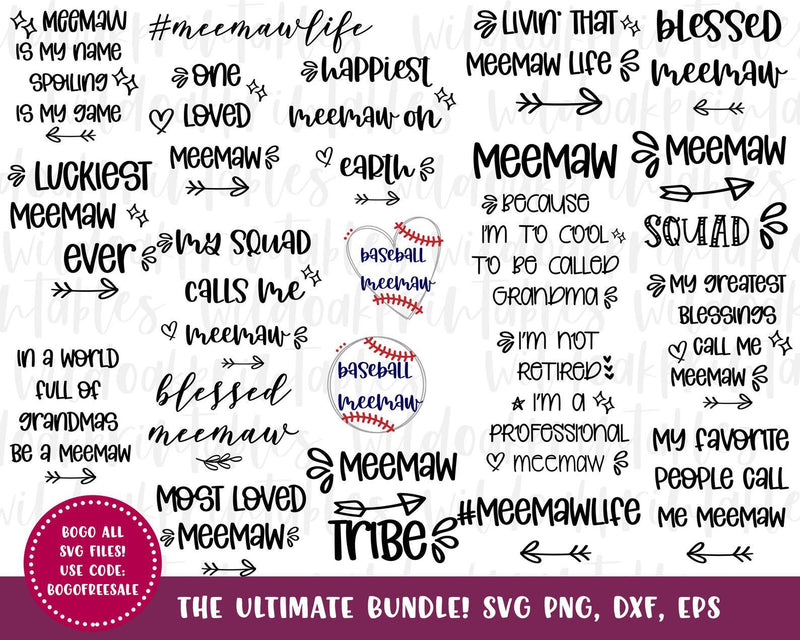 MEEMAW
IS MY NAME
SPOILING
IS MY GAME
#meemawlife
ONE
LOVED
MEEMAW
HAPPIEST
MEEMAW ON
EARTH
LIVIN' THAT
MEEMAW LIFE
BLESSED
MEEMAW
LUCKIEST
MEEMAW
EVER
MY SQUAD
CALLS ME
MEEMAW
baseball
meemaw
baseball
meemaw
MEEMAW
BECAUSE
I'M TO COOL
TO BE CALLED
GRANDMA
MEEMAW
SQUAD
MY GREATEST
BLESSINGS
CALL ME
MEEMAW
IN A WORLD
FULL OF
GRANDMAS
BE A MEEMAW
blessed
meemaw
I'M NOT
RETIRED
I'M A
PROFESSIONAL
MEEMAW
MY FAVORITE
PEOPLE CALL
ME MEEMAW
MOST LOVED
MEEMAW
MEEMAW
TRIBE
#MEEMAWLIFE
BOGO ALL
SVG FILES!
USE CODE:
BOGOFREESALE
THE ULTIMATE BUNDLE! SVG PNG, DXF, EPS